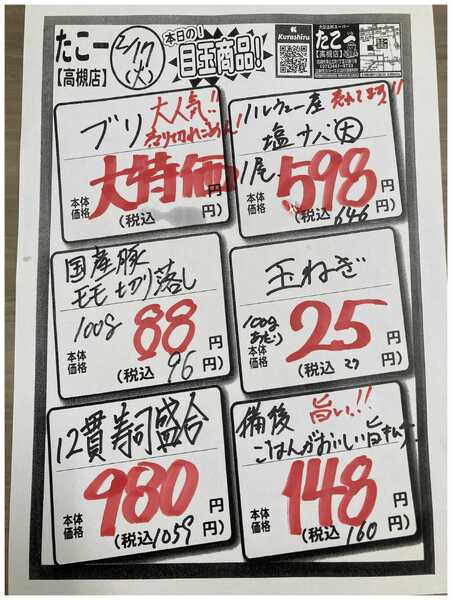 たこー
【高槻店】
2/17
(火)
本日の!
目玉商品!
Kurashiru
たこー
【高槻店】
ブリ
大人気!!
売り切れごめん!
大特価
本体
価格
円
(税込 円)
ノルウェー産
売れてます!!
塩サバ大
1尾
598
本体
価格
円
(税込 646 円)
国産豚
モモ切り落し
100g
88
本体
価格
円
(税込 96 円)
玉ねぎ
100g
あたり
25
本体
価格
円
(税込 27 円)
12貫寿司盛合
980
本体
価格
円
(税込 1059 円)
備後
旨い!!
ごはんがおいしい旨キムチ
148
本体
価格
円
(税込 160 円)